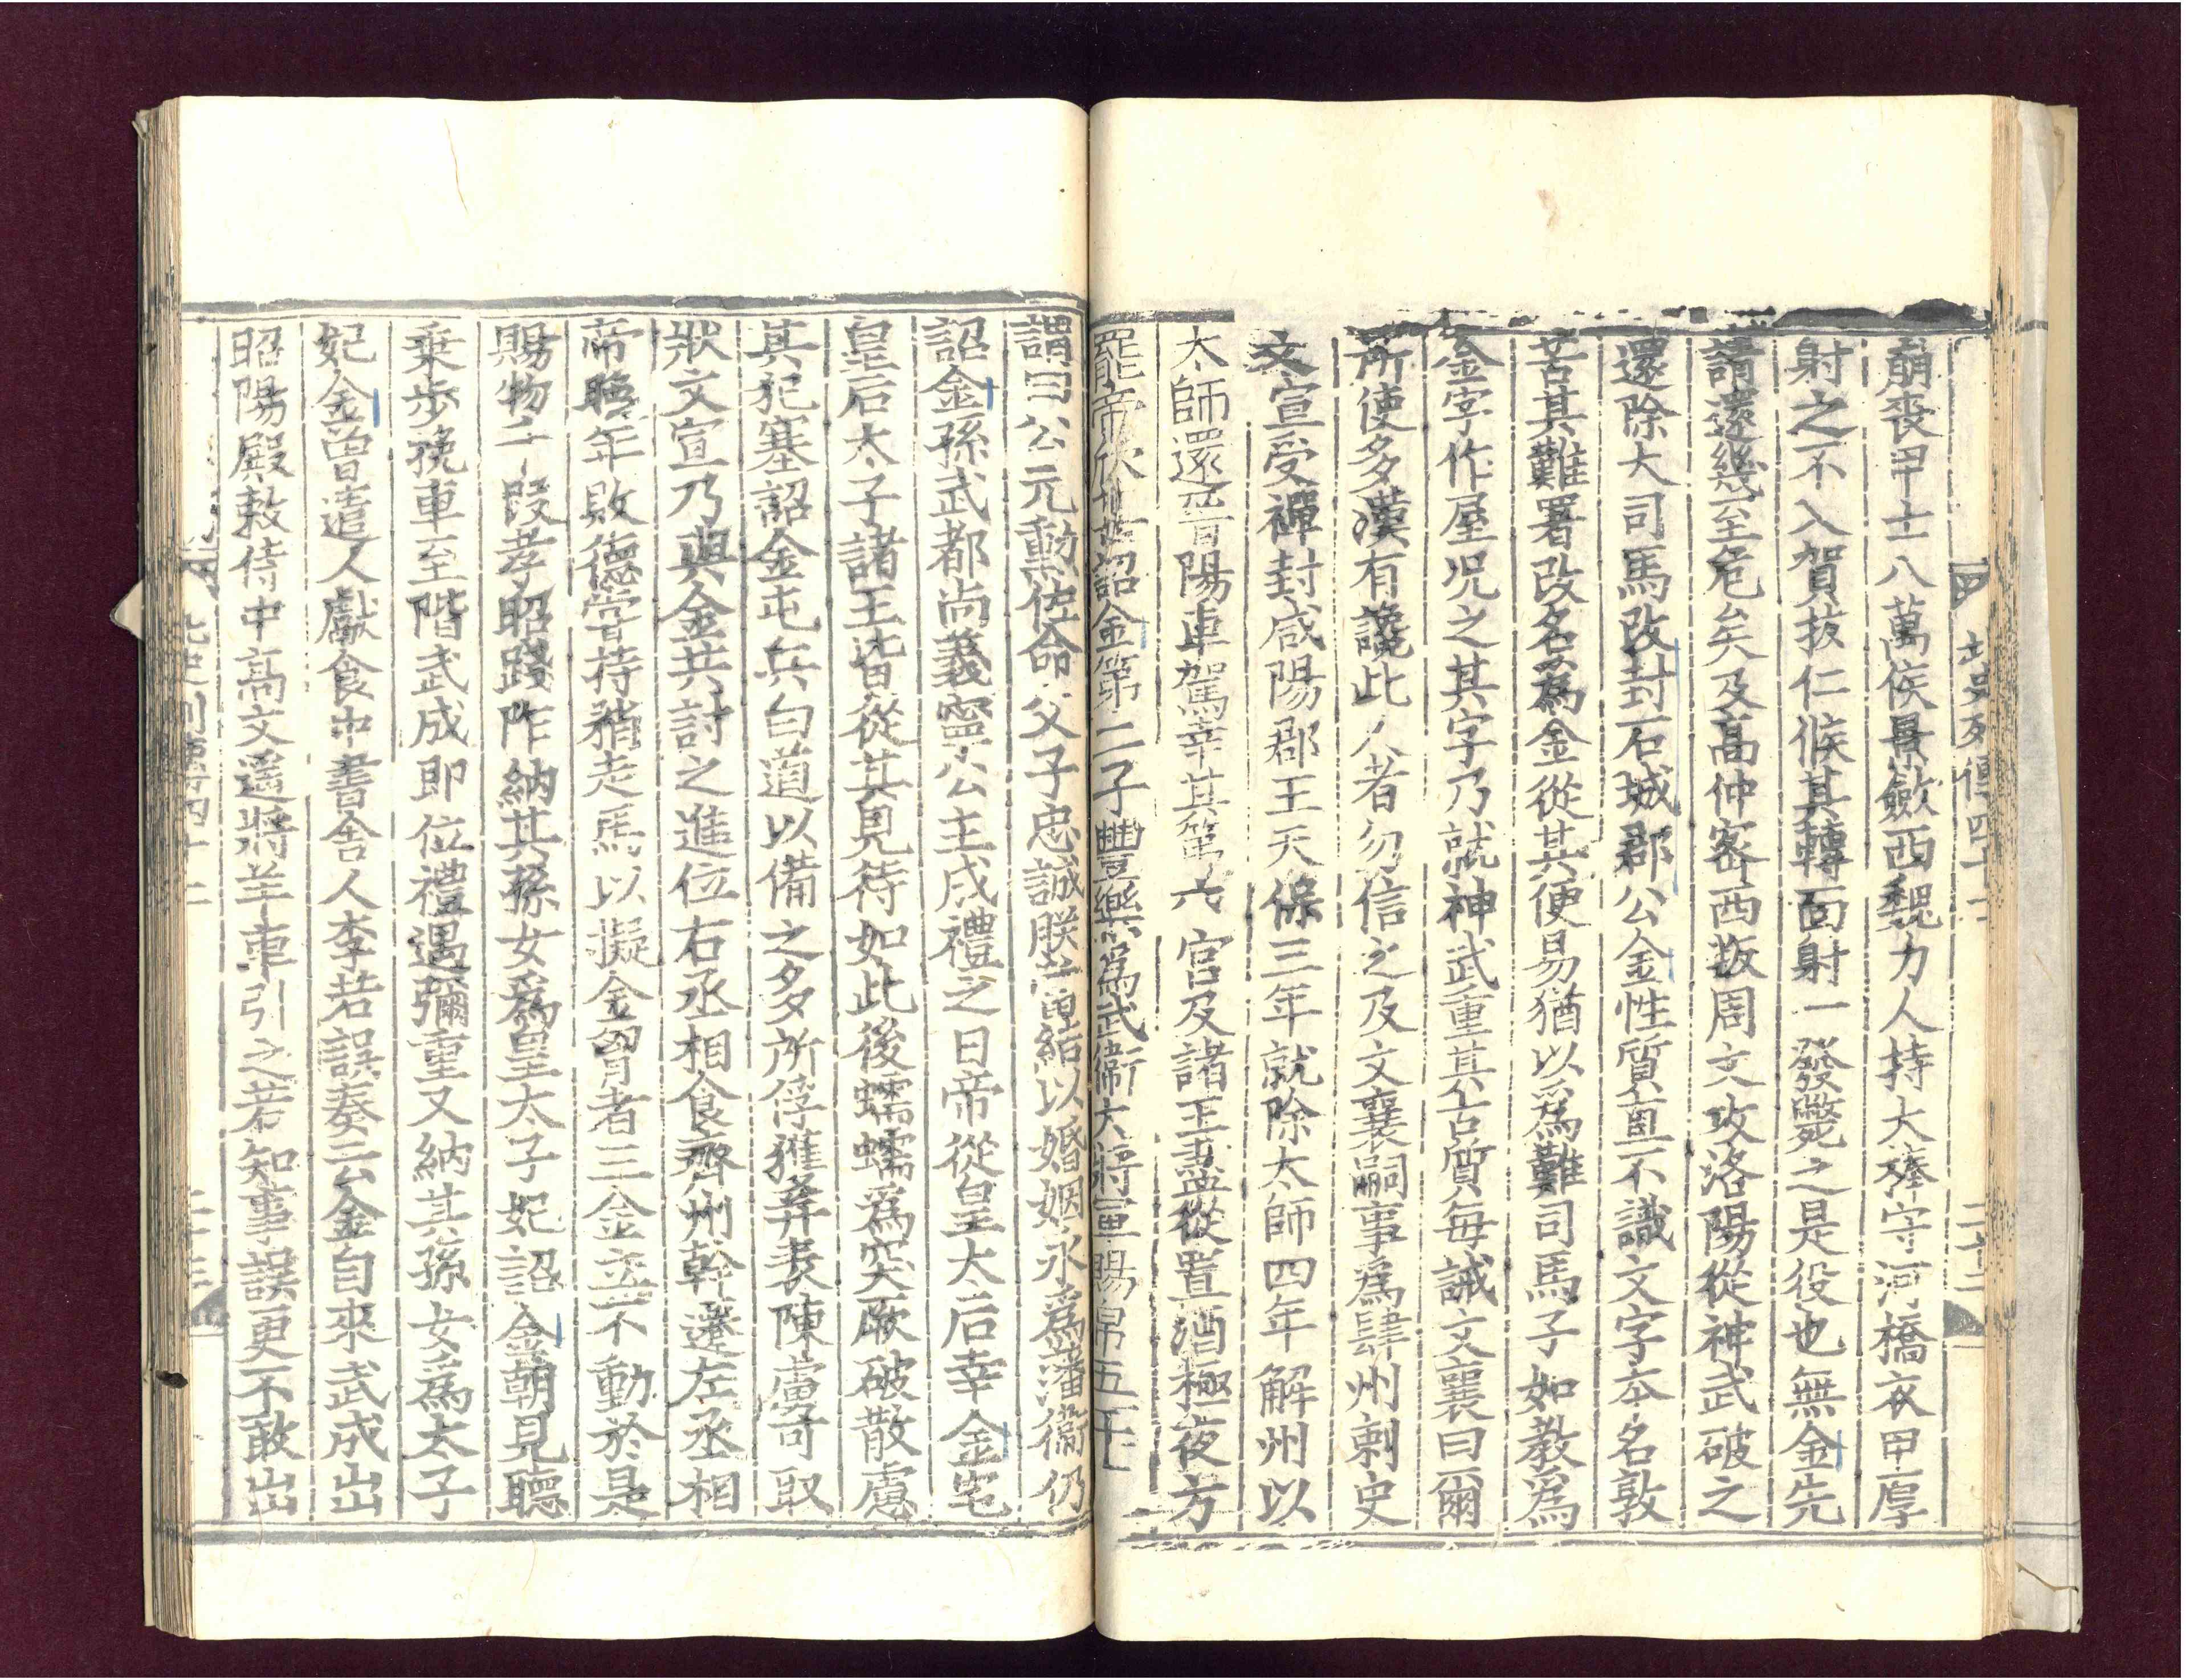 北史列傳四十二
二十二
崩喪甲士八萬侯景斂西魏力人持大棒守河橋衣甲厚
射之不入賀拔仁候其轉面射一發斃之是役也無金先
請還幾至危矣及高仲密西叛周文攻洛陽從神武破之
還除大司馬改封石城郡公金性質直不識文字本名敦
苦其難署改名爲金從其便易猶以爲難司馬子如教爲
金字作屋況之其字乃就神武重其古質每誡文襄曰爾
所使多漢有讒此人者勿信之及文襄嗣事爲肆州刺史
文宣受禪封咸陽郡王天保三年就除太師四年解州以
太師還晉陽車駕幸其第六宮及諸王盡從置酒極夜方
罷帝欣甚詔金第二子豐樂爲武衞大將軍賜帛五千
謂曰公元勳佐命父子忠誠朕當結以婚姻永爲藩衞仍
詔金孫武都尚義寧公主成禮之日帝從皇太后幸金宅
皇后太子諸王皆從其見待如此後蠕蠕爲突厥破散慮
其犯塞詔金屯兵白道以備之多所俘獲幷表陳虜可取
狀文宣乃與金共討之進位右丞相食齊州幹遷左丞相
帝晚年敗德嘗持矟走馬以擬金胷者三金立不動於是
賜物千段孝昭踐阼納其孫女爲皇太子妃詔金朝見聽
乗步挽車至階武成卽位禮遇彌重又納其孫女爲太子
妃金曾遣人獻食中書舍人李若誤奏云金自來武成出
昭陽殿敕侍中高文遥將羊車引之若知事誤更不敢出
北史列傳四十二
二十三